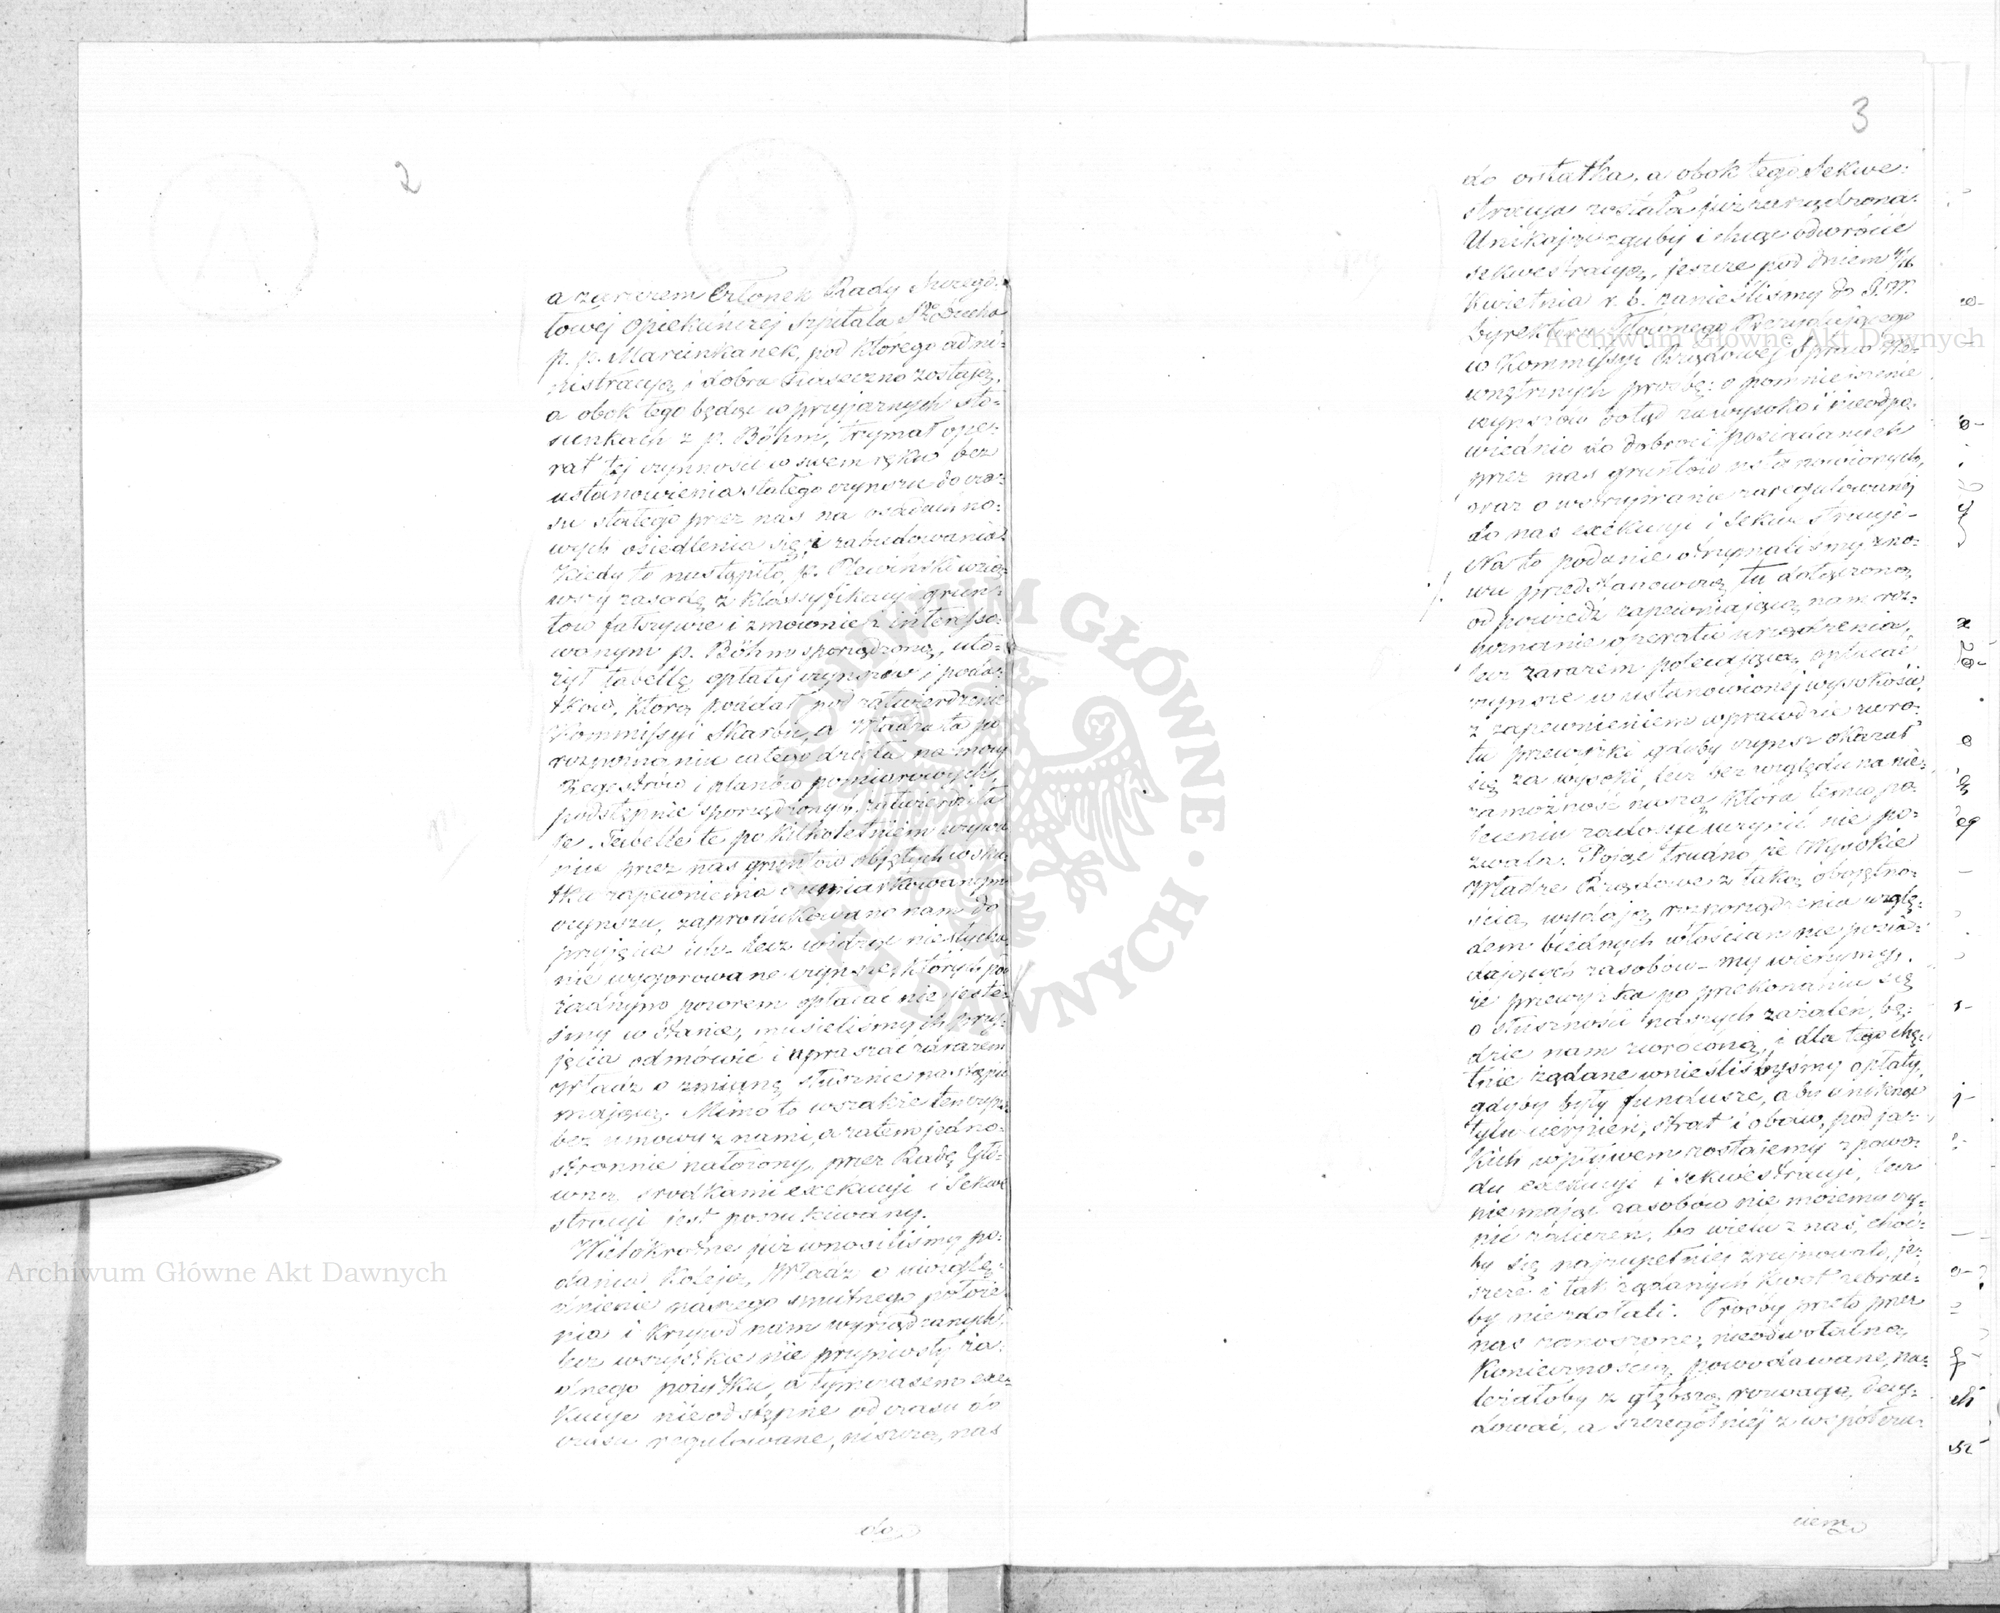 2
a zarazem Członek Rady Szczegó-
łowej Opiekuńczej Szpitala Sgo Ducha
p. p. Marcinkanek, pod którego admi-
nistracyą i dobra zostają,
a obok tego będąc w przyjaznych sto-
sunkach z p. Böhm, trzymał ope-
rat tej czynności w swem ręku bez
ustanowienia stałego czynszu do cza-
su stałego przez nas na osadach no-
wych osiedlenia się i zabudowania.
Kiedy to nastąpiło, p. wzią-
wszy zasadę z klassyfikacyi grun-
tów fałszywie i zmownie z interesso-
wanym p. Böhm sporządzoną, uło-
żył tabellę opłaty czynszów i podat-
ków, którą podał pod zatwierdzenie
Kommissyi Skarbu, a Władza ta po
rozpoznaniu całego dzieła na mocy
Regestrów i planów pomiarowych,
podstępnie sporządzonych zatwierdziła
je. Tabelle te po kilkoletniem używa-
niu przez nas gruntów objętych w sku-
tku zapewnienia o umiarkowanym
czynszu, zaprodukowano nam do
przyjęcia ich lecz widząc niesłycha-
nie wygórowane czynsze, których pod
żadnym pozorem opłacać nie jeste-
śmy w stanie, musieliśmy ich przy-
jęcia odmówić i upraszać zarazem
Władz o zmianę słusznie nastąpić
mającą. Mimo to wszakże ten czynsz
bez umowy z nami, a zatem jedno-
stronnie nałożony, przez Radę Głó-
wną środkami exekucyi i Sekwe-
stracyi jest poszukiwany.
Wielokrotne już wnosiliśmy po-
dania koleją Władz o uwzglę-
dnienie naszego smutnego położe-
nia i krzywd nam wyrządzanych
lecz wszystkie nie przyniosły ża-
dnego pożytku, a tymczasem exe-
kucye nieodstępne od czasu do
czasu regulowane, niszczą nas
do
3
do ostatka, a obok tego Sekwe-
stracya została już zarządzona.
Unikając zguby i chcąc odwrócić
sekwestracyą, jeszcze pod dniem
Kwietnia r. b. zanieśliśmy do J.W.
Dyrektora Głównego Prezydującego
w Kommissyi Rządowej Spraw We-
wnętrznych prośbę: o pomniejszenie
czynszów dotąd za wysoko i nieodpo-
wiednio do dobroci posiadanych
przez nas gruntów ustanowionych,
oraz o wstrzymanie zaregulowanej
do nas exekucyi i Sekwestracyi.
Na to podanie otrzymaliśmy zno-
wu przedstanowczą tu dołączoną
odpowiedź zapewniającą nam roz-
poznanie operatu urządzenia,
lecz zarazem polecającą opłacać
czynsze w ustanowionej wysokości,
z zapewnieniem wprawdzie zwro-
tu przewyżki gdyby czynsz okazał
się za wysoki, lecz bez względu na nie-
zamożność naszą, która temu po-
leceniu zadosyć uczynić nie po-
zwala. Pojąć trudno, że Wysokie
Władze Rządowe z taką obojętno-
ścią wydają rozporządzenia wzglę-
dem biednych włościan nie posia-
dających zasobów – my wierzymy,
że przewyżka po przekonaniu się
o słuszności naszych zażaleń, bę-
dzie nam zwróconą, i dla tego chę-
tnie żądane wnieślibyśmy opłaty,
gdyby były fundusze, a by uniknąć
tylu cierpień, strat i obaw, pod ja-
kich wpływem zostajemy z powo-
du exekucyi i sekwestracyi, lecz
nie mając zasobów nie możemy czy-
nić zaliczeń, bo wielu z nas, choć-
by się najzupełniej zrujnowało, je-
szcze i tak żądanych kwot zebrać-
by nie zdołali. Prośby przeto przez
nas zanoszone, nieodwołalną
koniecznością powodowane, na-
leżałoby z głębszą rozwagą decy-
dować, a szczególniej z współczu-
ciem
Archiwum Główne Akt Dawnych
Archiwum Główne Akt Dawnych
ARCHIWUM GŁÓWNE AKT DAWNYCH